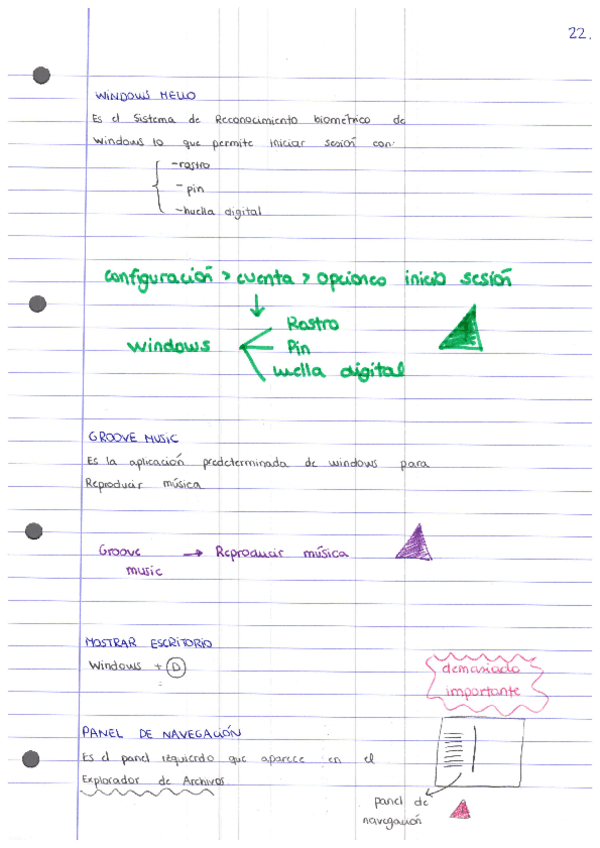 22.
WINDOWS HELLO
Es el Sistema de Reconocimiento biométrico de
Windows lo que permite iniciar sesión con:
-rostro
-pin
-huella digital
configuración > cuenta > opciones inicio sesión
windows
Rostro
Pin
uella digital
GROOVE MUSIC
Es la aplicación predeterminada de windows para
Reproducir música
Groove → Reproducir música
music
MOSTRAR ESCRITORIO
Windows + D
demasiado
importante
PANEL DE NAVEGACIÓN
Es el panel izquierdo que aparece en el
Explorador de Archivos.
panel de
navegación